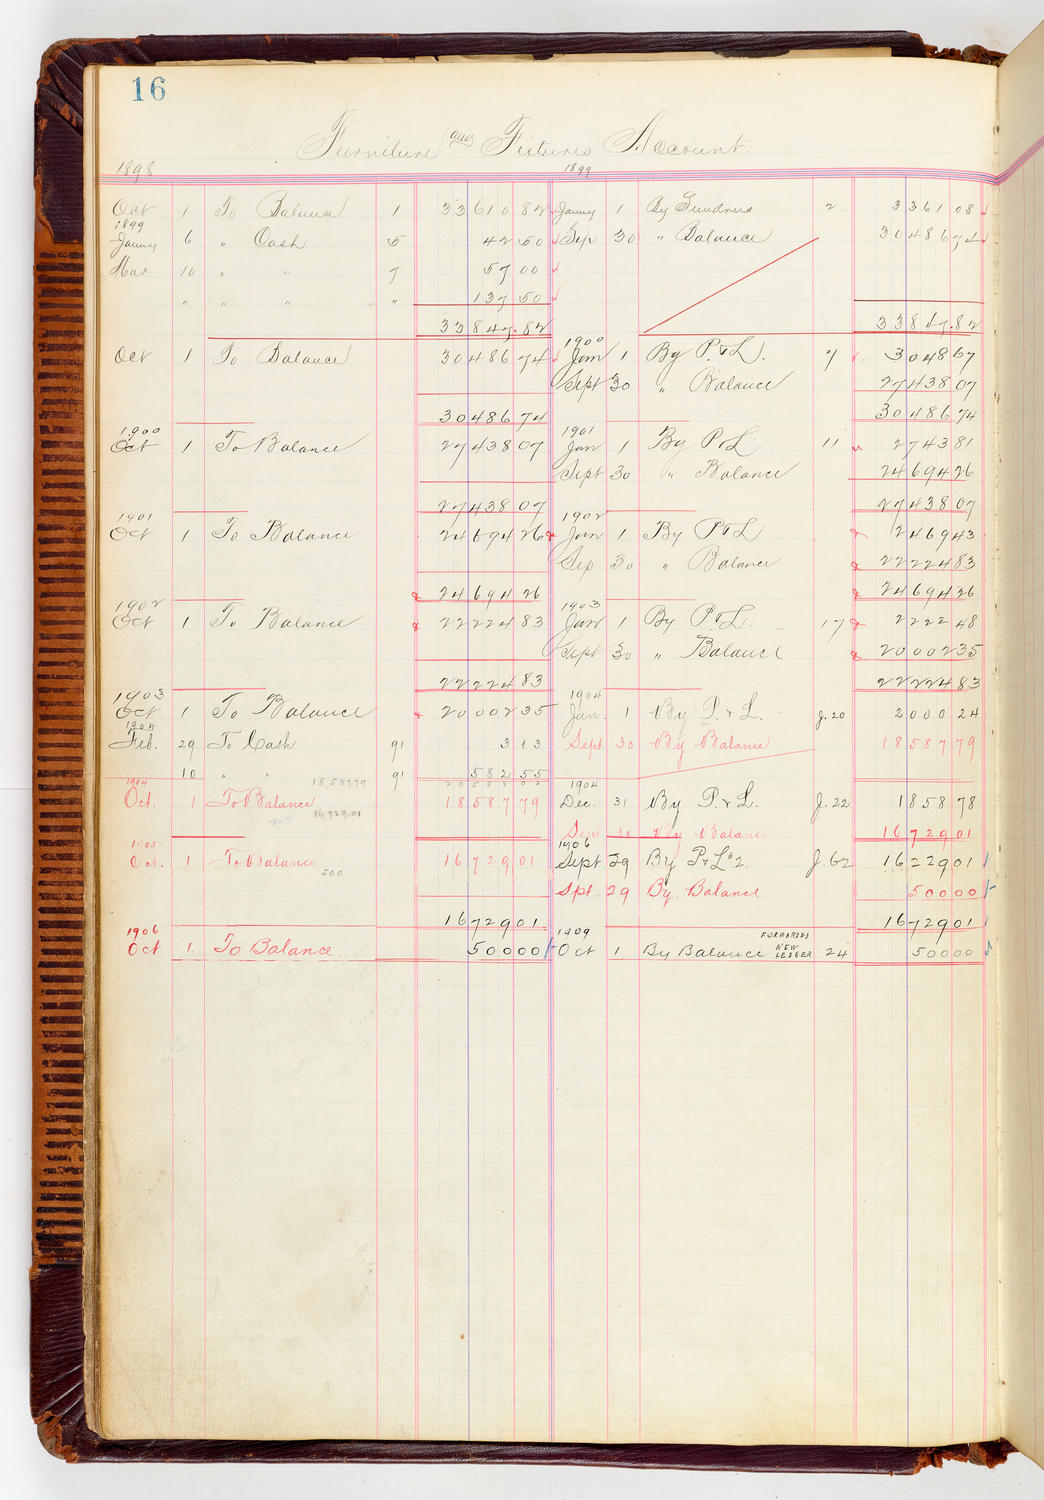 16
Furniture and Fixtures Account.
1898 1899
Oct 1 To Balance 1 33610 82 Janny 1 By Sundries 2 3361 08
1899
Janny 6 " Cash 5 42 50 Sep 30 " Balance 30486 74
Mar 10 " " 7 57 00
" " " " 137 50
33847.82 33847.82
1900
Oct 1 To Balance 30486 74 Jan 1 By P. & L. 7 3048 67
Sept 30 " Balance 27438 07
30486 74 30486 74
1900 1901
Oct 1 To Balance 27438 07 Jan 1 By P & L 11 2743 81
Sept 30 " Balance 24694 26
27438 07 27438 07
1901 1902
Oct 1 To Balance 24694 26 Jan 1 By P & L 2469 43
Sep 30 " Balance 22224 83
24694 26 24694 26
1902 1903
Oct 1 To Balance 22224 83 Jan 1 By P & L. 17 2222 48
Sept 30 " Balance 20002 35
22224 83 22224 83
1903 1904
Oct 1 To Balance 20002 35 Jan. 1 By P. & L. J. 20 2000 24
1904
Feb. 29 To Cash 91 3 13 Sept 30 By Balance 18587 79
10 " " 18,587.79 91 582 55
1904 20588 03 1904
Oct. 1 To Balance 18587 79 Dec. 31 By P. & L. J. 22 1858 78
16,729.01
Sept 30 By Balance 16729 01
1905 1906
Oct. 1 To Balance 16729 01 Sept 29 By P & L #2. J. 62 16229 01
500
Spt. 29 By. Balance. 500 00
16729 01 16729 01
1906 1909 FORWARDED
Oct 1. To Balance. 500 00 Oct 1 By Balance NEW LEDGER 24 500 00